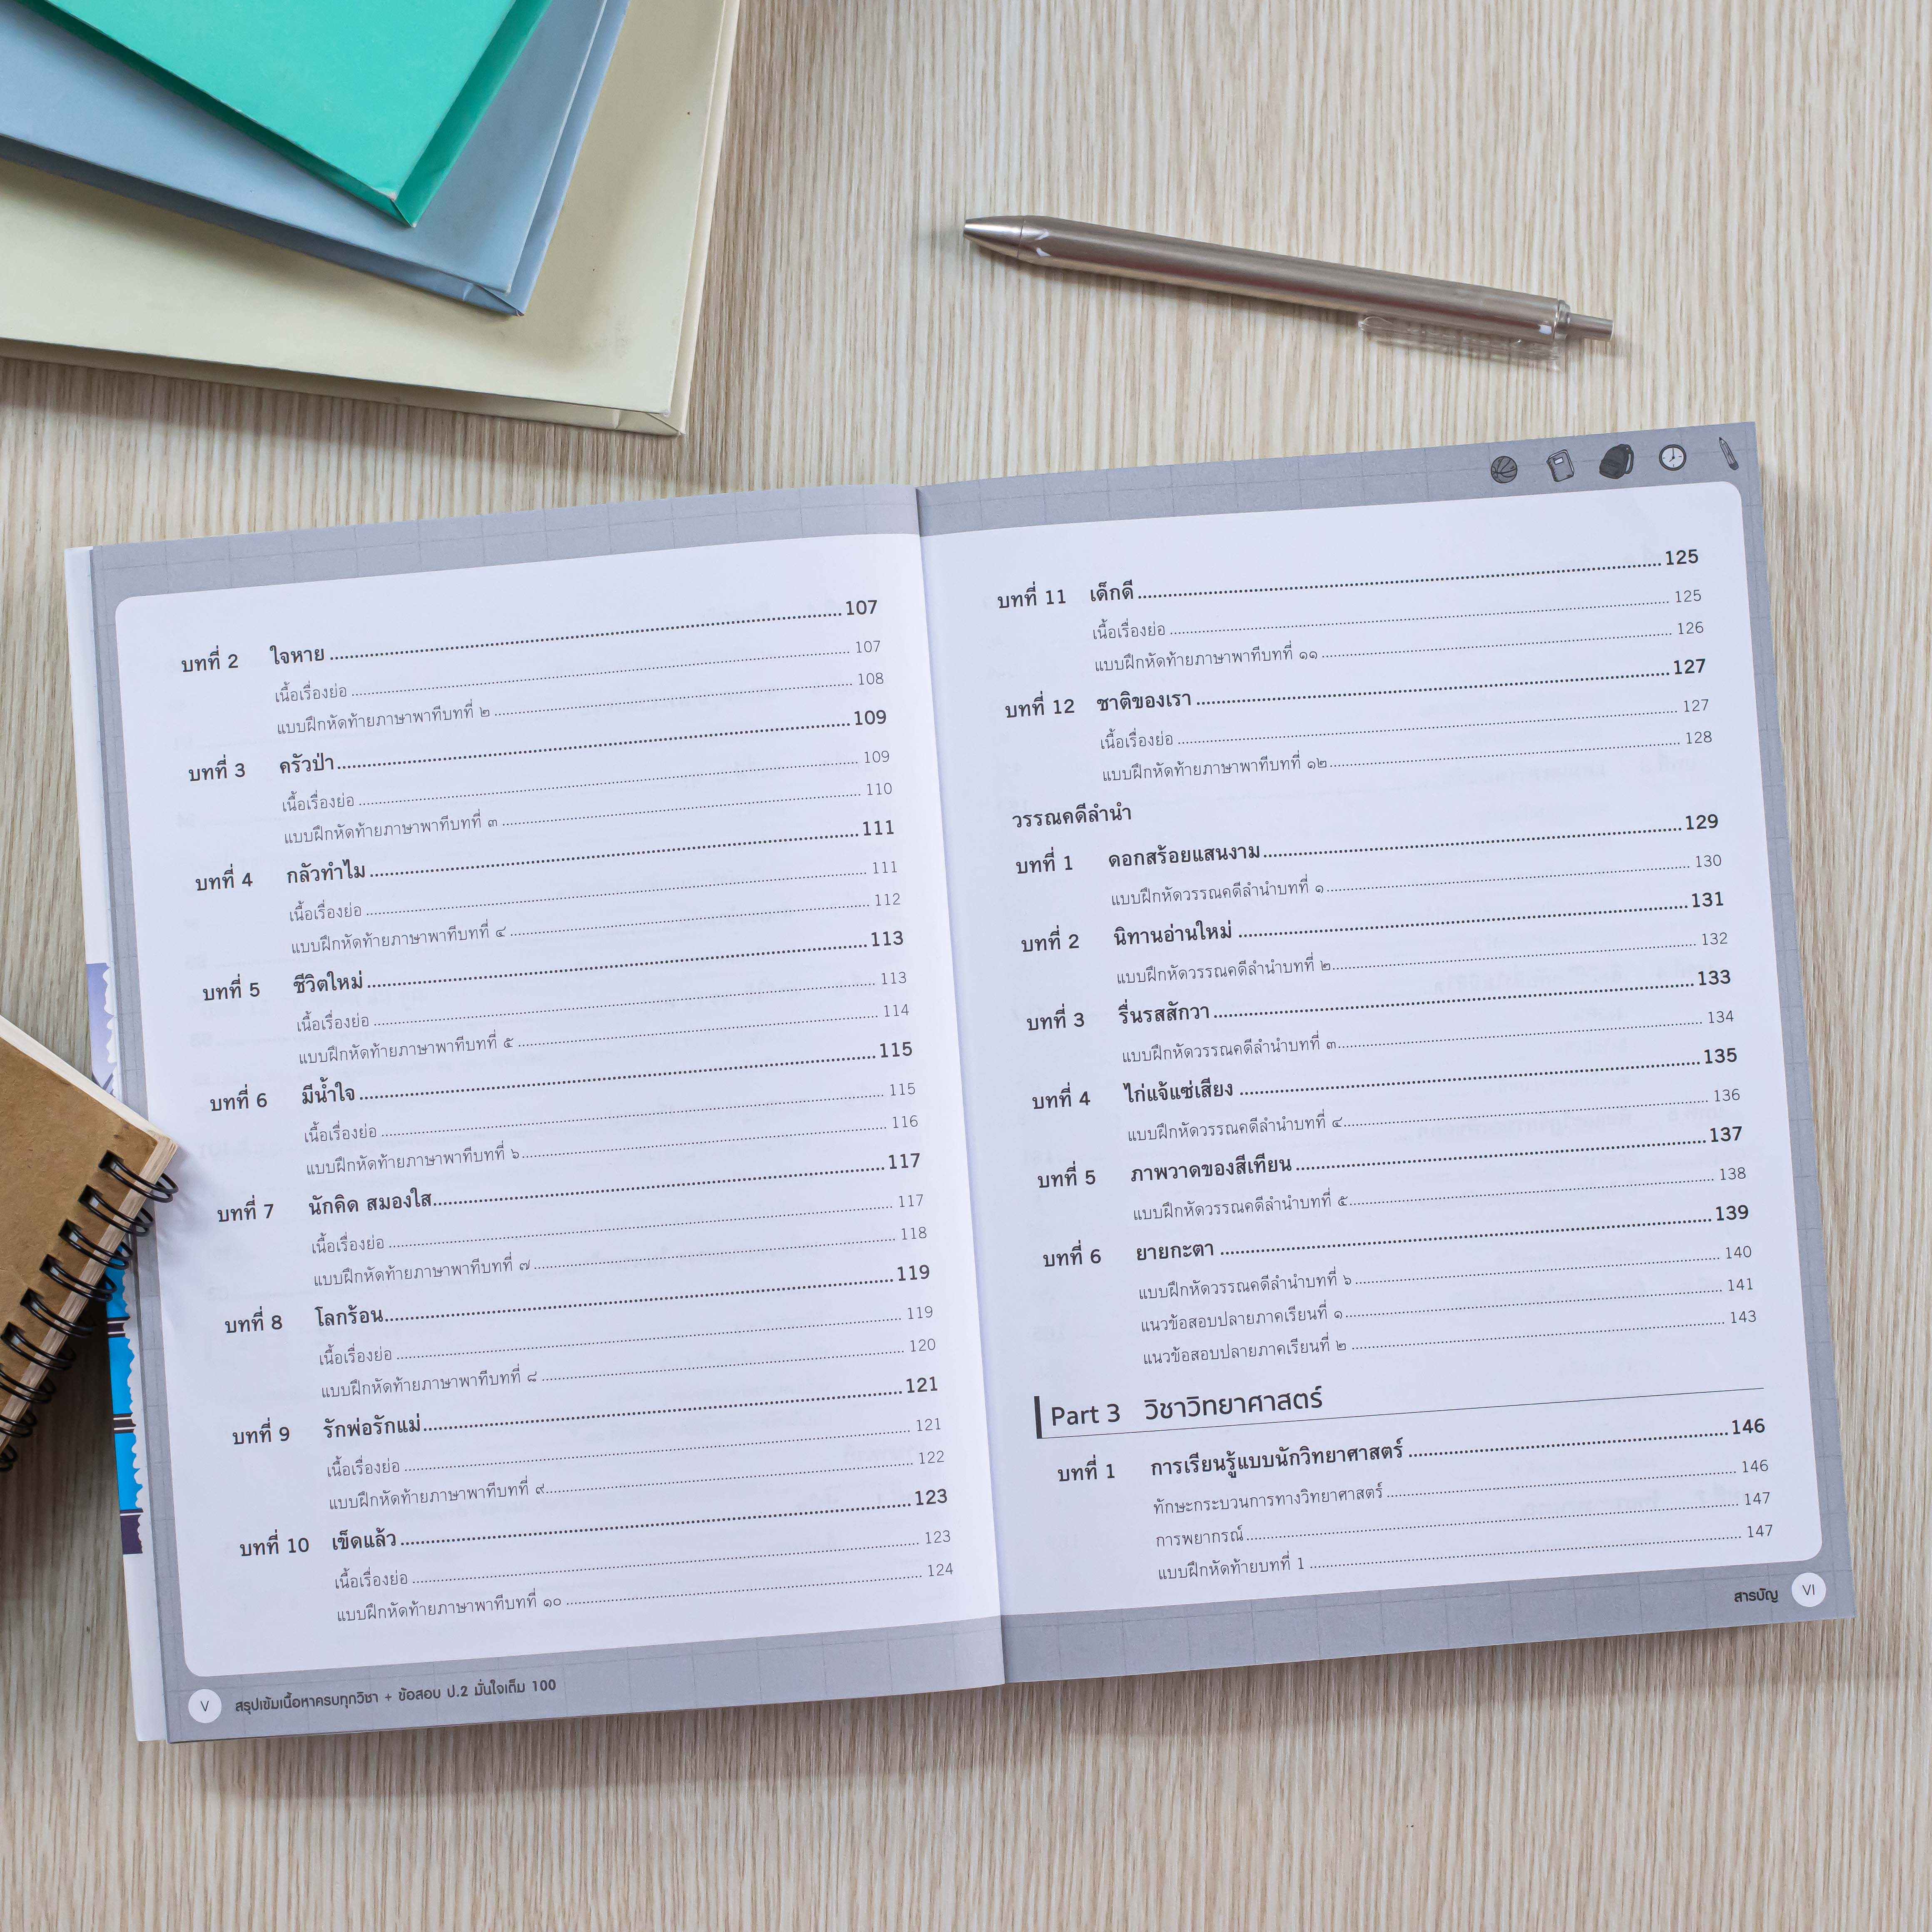 บทที่ 2 ใจหาย ........ 107
เนื้อเรื่องย่อ ........ 107
แบบฝึกหัดท้ายภาษาพาทีบทที่ ๒ ........ 108
บทที่ 3 ครัวป่า ........ 109
เนื้อเรื่องย่อ ........ 109
แบบฝึกหัดท้ายภาษาพาทีบทที่ ๓ ........ 110
บทที่ 4 กลัวทำไม ........ 111
เนื้อเรื่องย่อ ........ 111
แบบฝึกหัดท้ายภาษาพาทีบทที่ ๔ ........ 112
บทที่ 5 ชีวิตใหม่ ........ 113
เนื้อเรื่องย่อ ........ 113
แบบฝึกหัดท้ายภาษาพาทีบทที่ ๕ ........ 114
บทที่ 6 มีน้ำใจ ........ 115
เนื้อเรื่องย่อ ........ 115
แบบฝึกหัดท้ายภาษาพาทีบทที่ ๖ ........ 116
บทที่ 7 นักคิด สมองใส ........ 117
เนื้อเรื่องย่อ ........ 117
แบบฝึกหัดท้ายภาษาพาทีบทที่ ๗ ........ 118
บทที่ 8 โลกร้อน ........ 119
เนื้อเรื่องย่อ ........ 119
แบบฝึกหัดท้ายภาษาพาทีบทที่ ๘ ........ 120
บทที่ 9 รักพ่อรักแม่ ........ 121
เนื้อเรื่องย่อ ........ 121
แบบฝึกหัดท้ายภาษาพาทีบทที่ ๙ ........ 122
บทที่ 10 เข็ดแล้ว ........ 123
เนื้อเรื่องย่อ ........ 123
แบบฝึกหัดท้ายภาษาพาทีบทที่ ๑๐ ........ 124
V สรุปเข้มเนื้อหาครบทุกวิชา + ข้อสอบ ป.2 มั่นใจเต็ม 100
บทที่ 11 เด็กดี ........ 125
เนื้อเรื่องย่อ ........ 125
แบบฝึกหัดท้ายภาษาพาทีบทที่ ๑๑ ........ 126
บทที่ 12 ชาติของเรา ........ 127
เนื้อเรื่องย่อ ........ 127
แบบฝึกหัดท้ายภาษาพาทีบทที่ ๑๒ ........ 128
วรรณคดีลำนำ
บทที่ 1 ดอกสร้อยแสนงาม ........ 129
แบบฝึกหัดวรรณคดีลำนำบทที่ ๑ ........ 130
บทที่ 2 นิทานอ่านใหม่ ........ 131
แบบฝึกหัดวรรณคดีลำนำบทที่ ๒ ........ 132
บทที่ 3 รื่นรสสักวา ........ 133
แบบฝึกหัดวรรณคดีลำนำบทที่ ๓ ........ 134
บทที่ 4 ไก่แจ้แซ่เสียง ........ 135
แบบฝึกหัดวรรณคดีลำนำบทที่ ๔ ........ 136
บทที่ 5 ภาพวาดของสีเทียน ........ 137
แบบฝึกหัดวรรณคดีลำนำบทที่ ๕ ........ 138
บทที่ 6 ยายกะตา ........ 139
แบบฝึกหัดวรรณคดีลำนำบทที่ ๖ ........ 140
แนวข้อสอบปลายภาคเรียนที่ ๑ ........ 141
แนวข้อสอบปลายภาคเรียนที่ ๒ ........ 143
Part 3 วิชาวิทยาศาสตร์
บทที่ 1 การเรียนรู้แบบนักวิทยาศาสตร์ ........ 146
ทักษะกระบวนการทางวิทยาศาสตร์ ........ 146
การพยากรณ์ ........ 147
แบบฝึกหัดท้ายบทที่ 1 ........ 147
สารบัญ VI